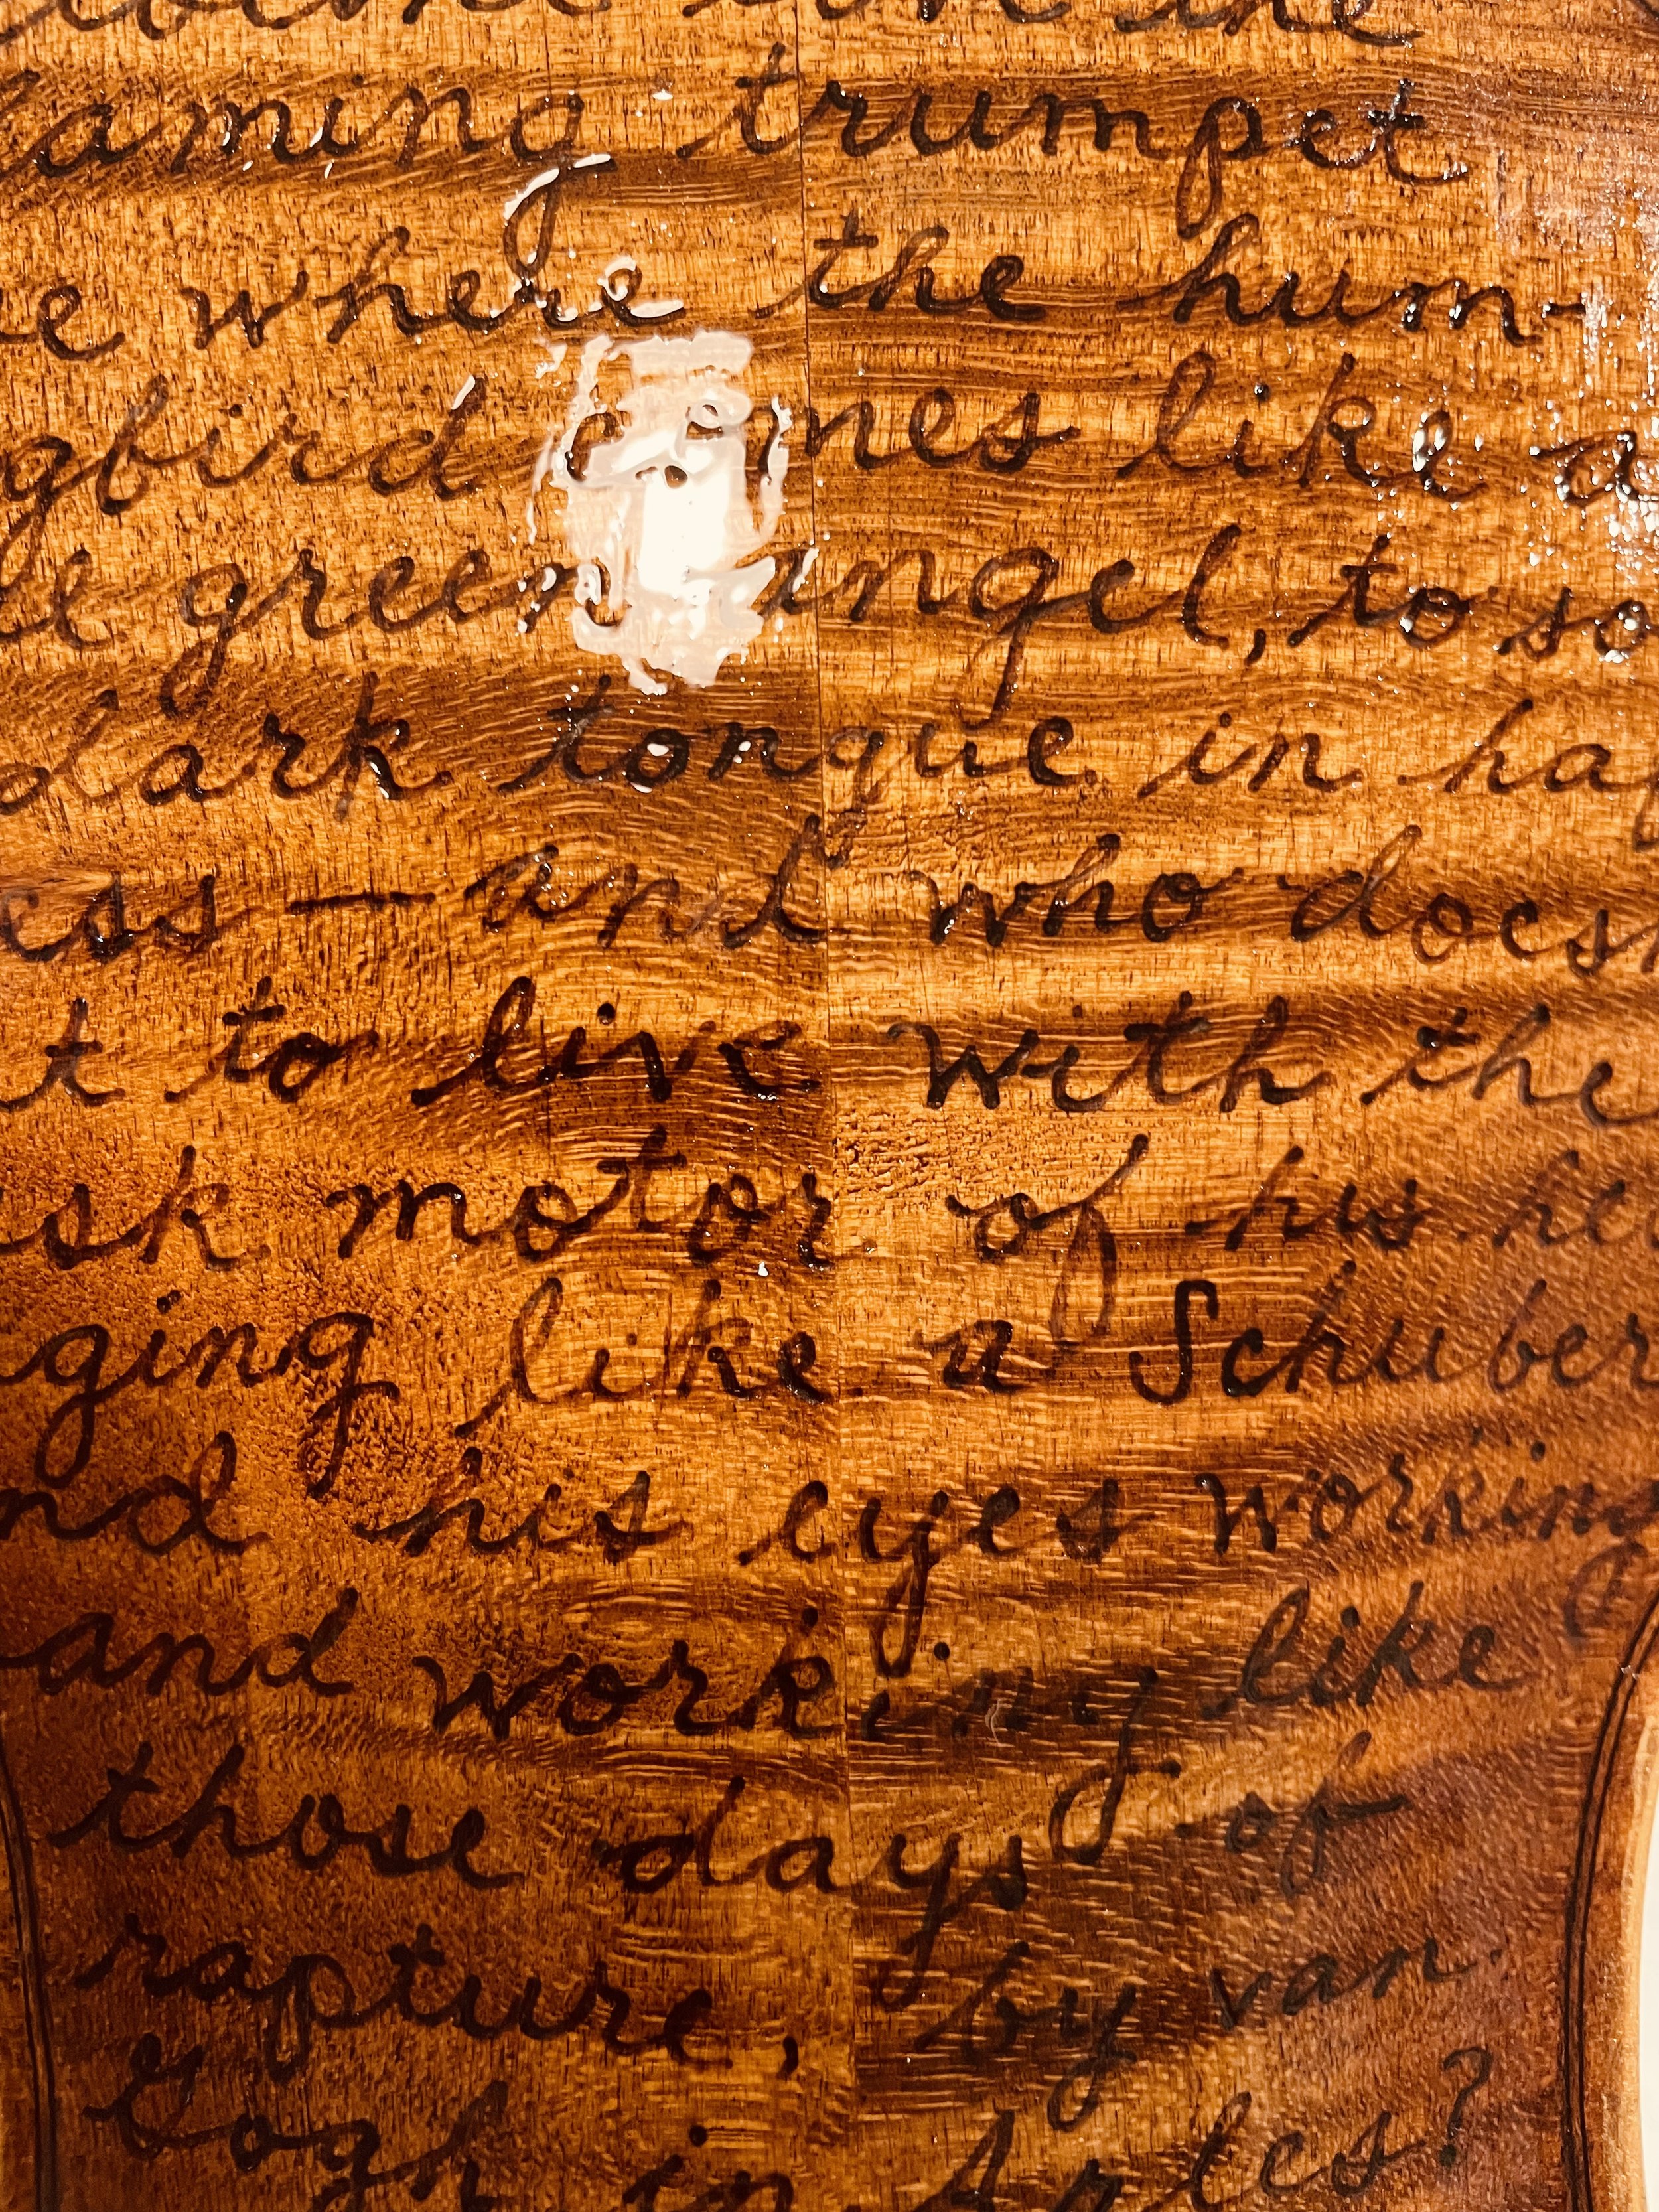 the
aming trumpet
e where the hum-
gbird comes like a
le green angel, to so
dark tongue in hap
ess — and who doesn
t to live with the
sk motor of his he
ging like a Schuber
nd his eyes working
and working like
those days of
rapture, by van
Gogh in Arles?